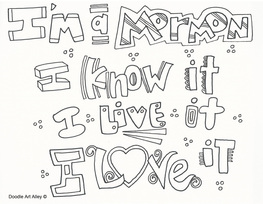 I'm a Mormon
I know it
I Live it
I Love iT
Doodle Art Alley ©